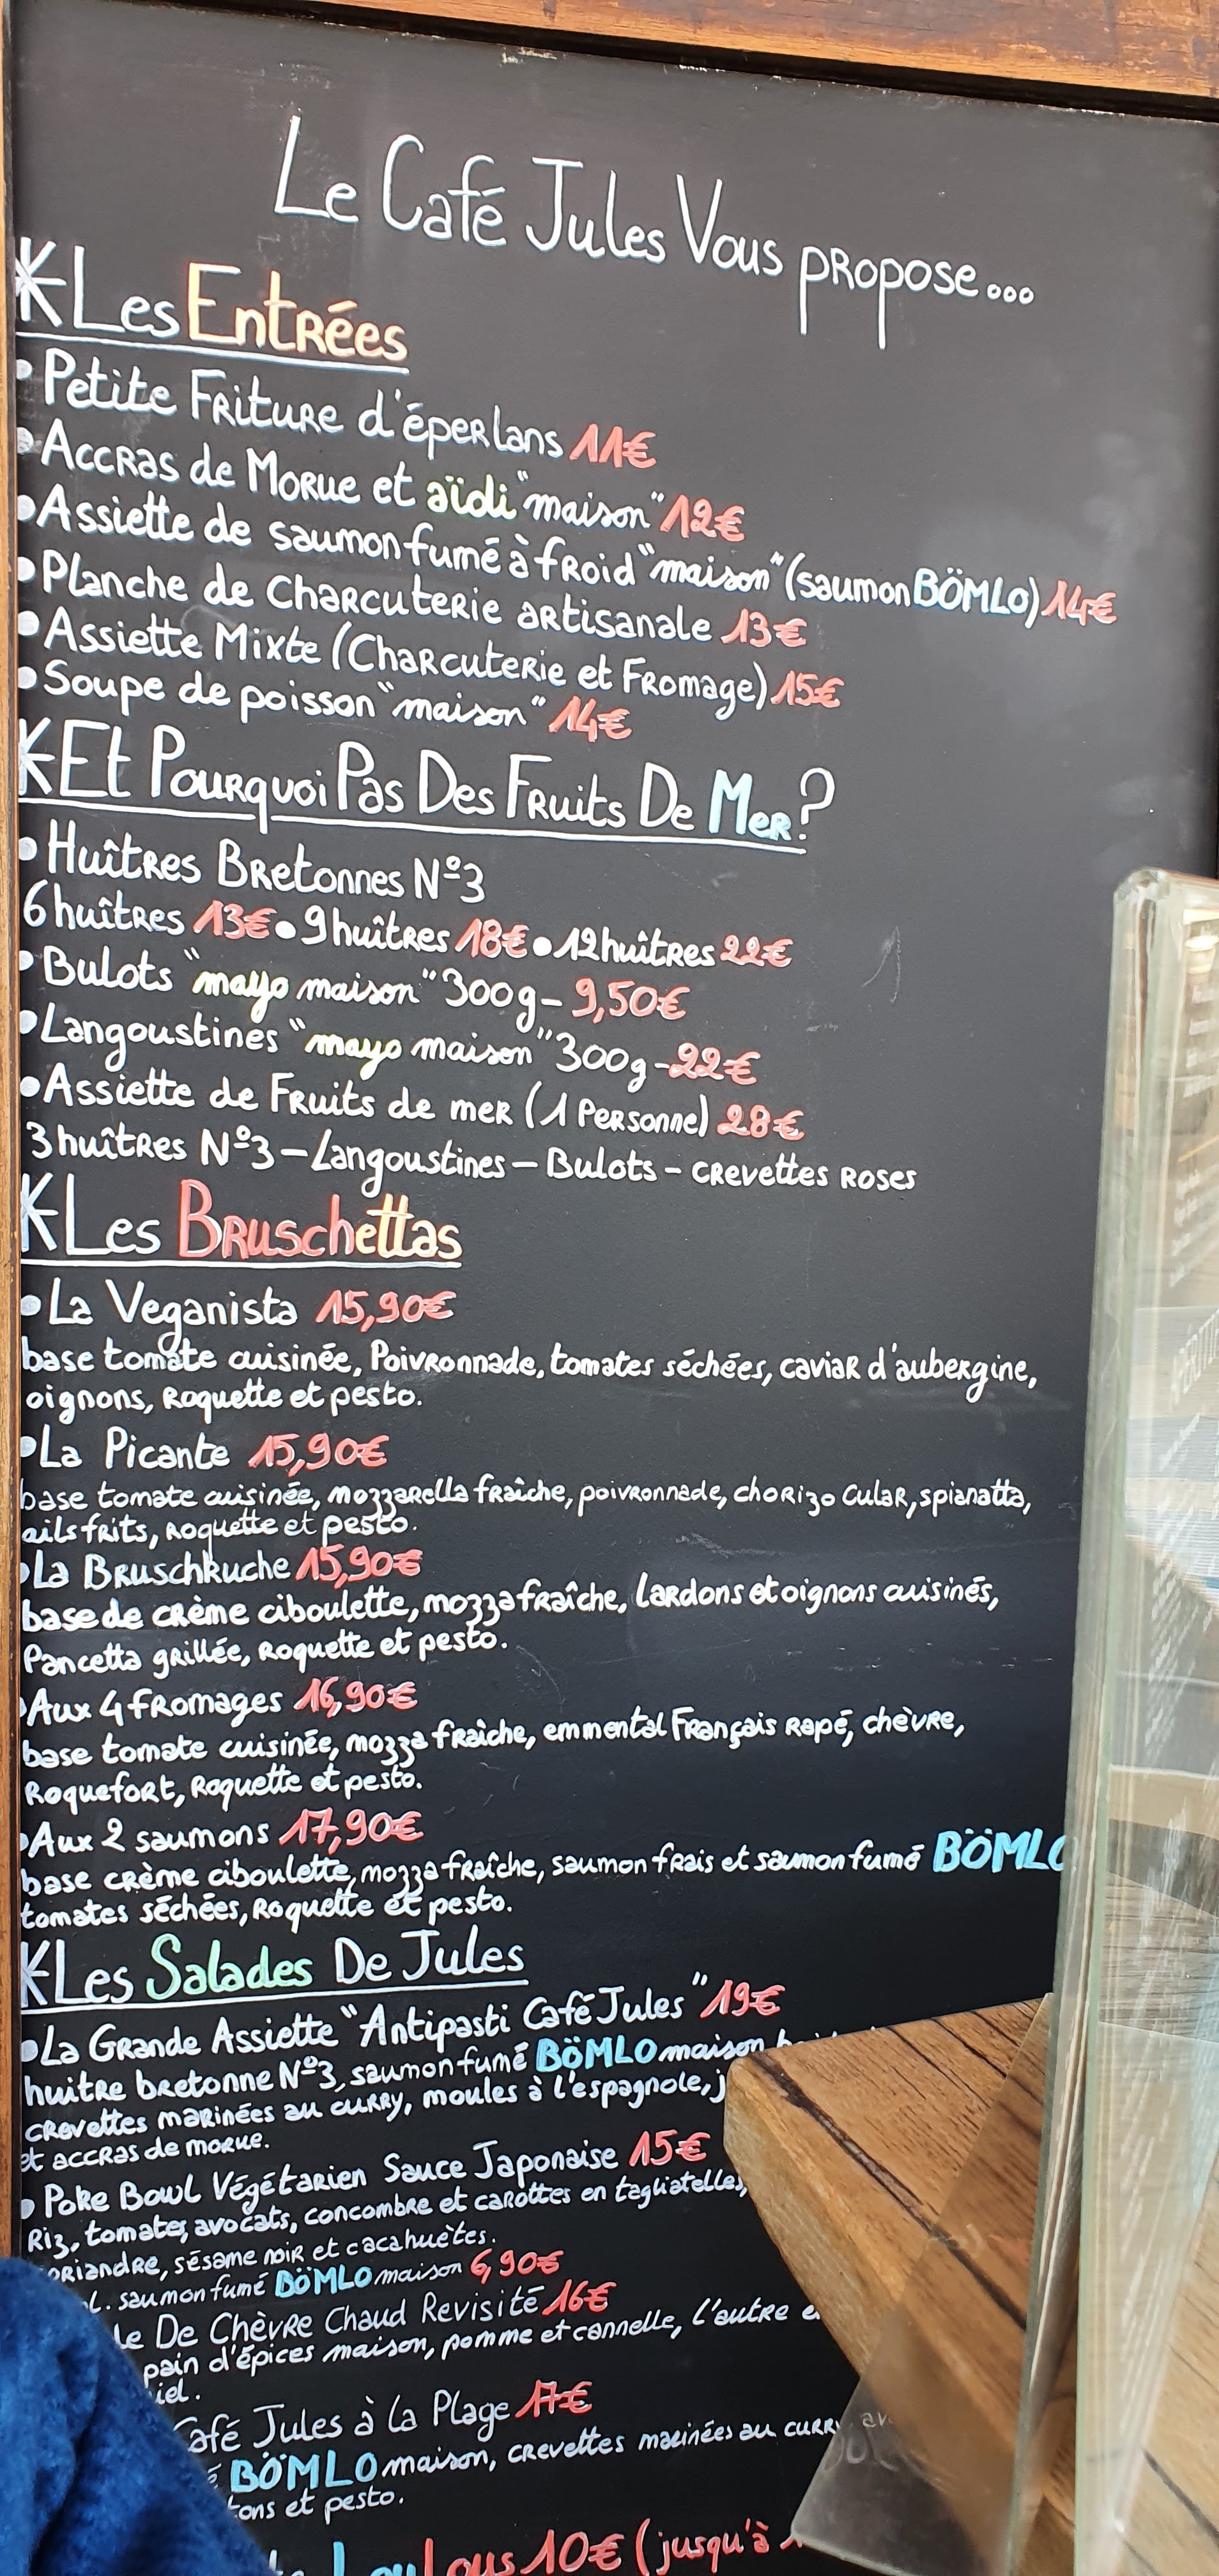 Le Café Jules Vous propose...
Les Entrées
• Petite Friture d'éperlans 11€
• Accras de Morue et aïdi "maison" 12€
• Assiette de saumon fumé à froid "maison" (saumon BÖMLO) 14€
• Planche de Charcuterie artisanale 13€
• Assiette Mixte (Charcuterie et Fromage) 15€
• Soupe de poisson "maison" 14€
Et Pourquoi Pas Des Fruits De Mer?
• Huîtres Bretonnes Nº3
6 huîtres 13€ • 9 huîtres 18€ • 12 huîtres 22€
• Bulots "mayo maison" 300g - 9,50€
• Langoustines "mayo maison" 300g - 22€
• Assiette de Fruits de mer (1 Personne) 28€
3 huîtres Nº3 - Langoustines - Bulots - crevettes roses
Les Bruschettas
• La Veganista 15,90€
base tomate cuisinée, Poivronnade, tomates séchées, caviar d'aubergine,
oignons, roquette et pesto.
• La Picante 15,90€
base tomate cuisinée, mozzarella fraîche, poivronnade, chorizo Cular, spianatta,
ails frits, roquette et pesto.
• La Bruschkuche 15,90€
base de crème ciboulette, mozza fraîche, Lardons et oignons cuisinés,
Pancetta grillée, roquette et pesto.
• Aux 4 fromages 16,90€
base tomate cuisinée, mozza fraîche, emmental Français rapé, chèvre,
Roquefort, roquette et pesto.
• Aux 2 saumons 17,90€
base crème ciboulette, mozza fraîche, saumon frais et saumon fumé BÖMLO
tomates séchées, roquette et pesto.
Les Salades De Jules
• La Grande Assiette "Antipasti Café Jules" 19€
huitre bretonne Nº3, saumon fumé BÖMLO maison
crevettes marinées au curry, moules à l'espagnole,
et accras de morue.
• Poke Bowl Végétarien Sauce Japonaise 15€
Riz, tomates, avocats, concombre et carottes en tagliatelles,
oriandre, sésame noir et cacahuètes.
saumon fumé BÖMLO maison 6,90€
De Chèvre Chaud Revisité 16€
pain d'épices maison, pomme et cannelle, l'autre
iel.
Café Jules à la Plage 17€
BÖMLO maison, crevettes marinées au curry
tons et pesto.
Loulous 10€ (jusqu'à